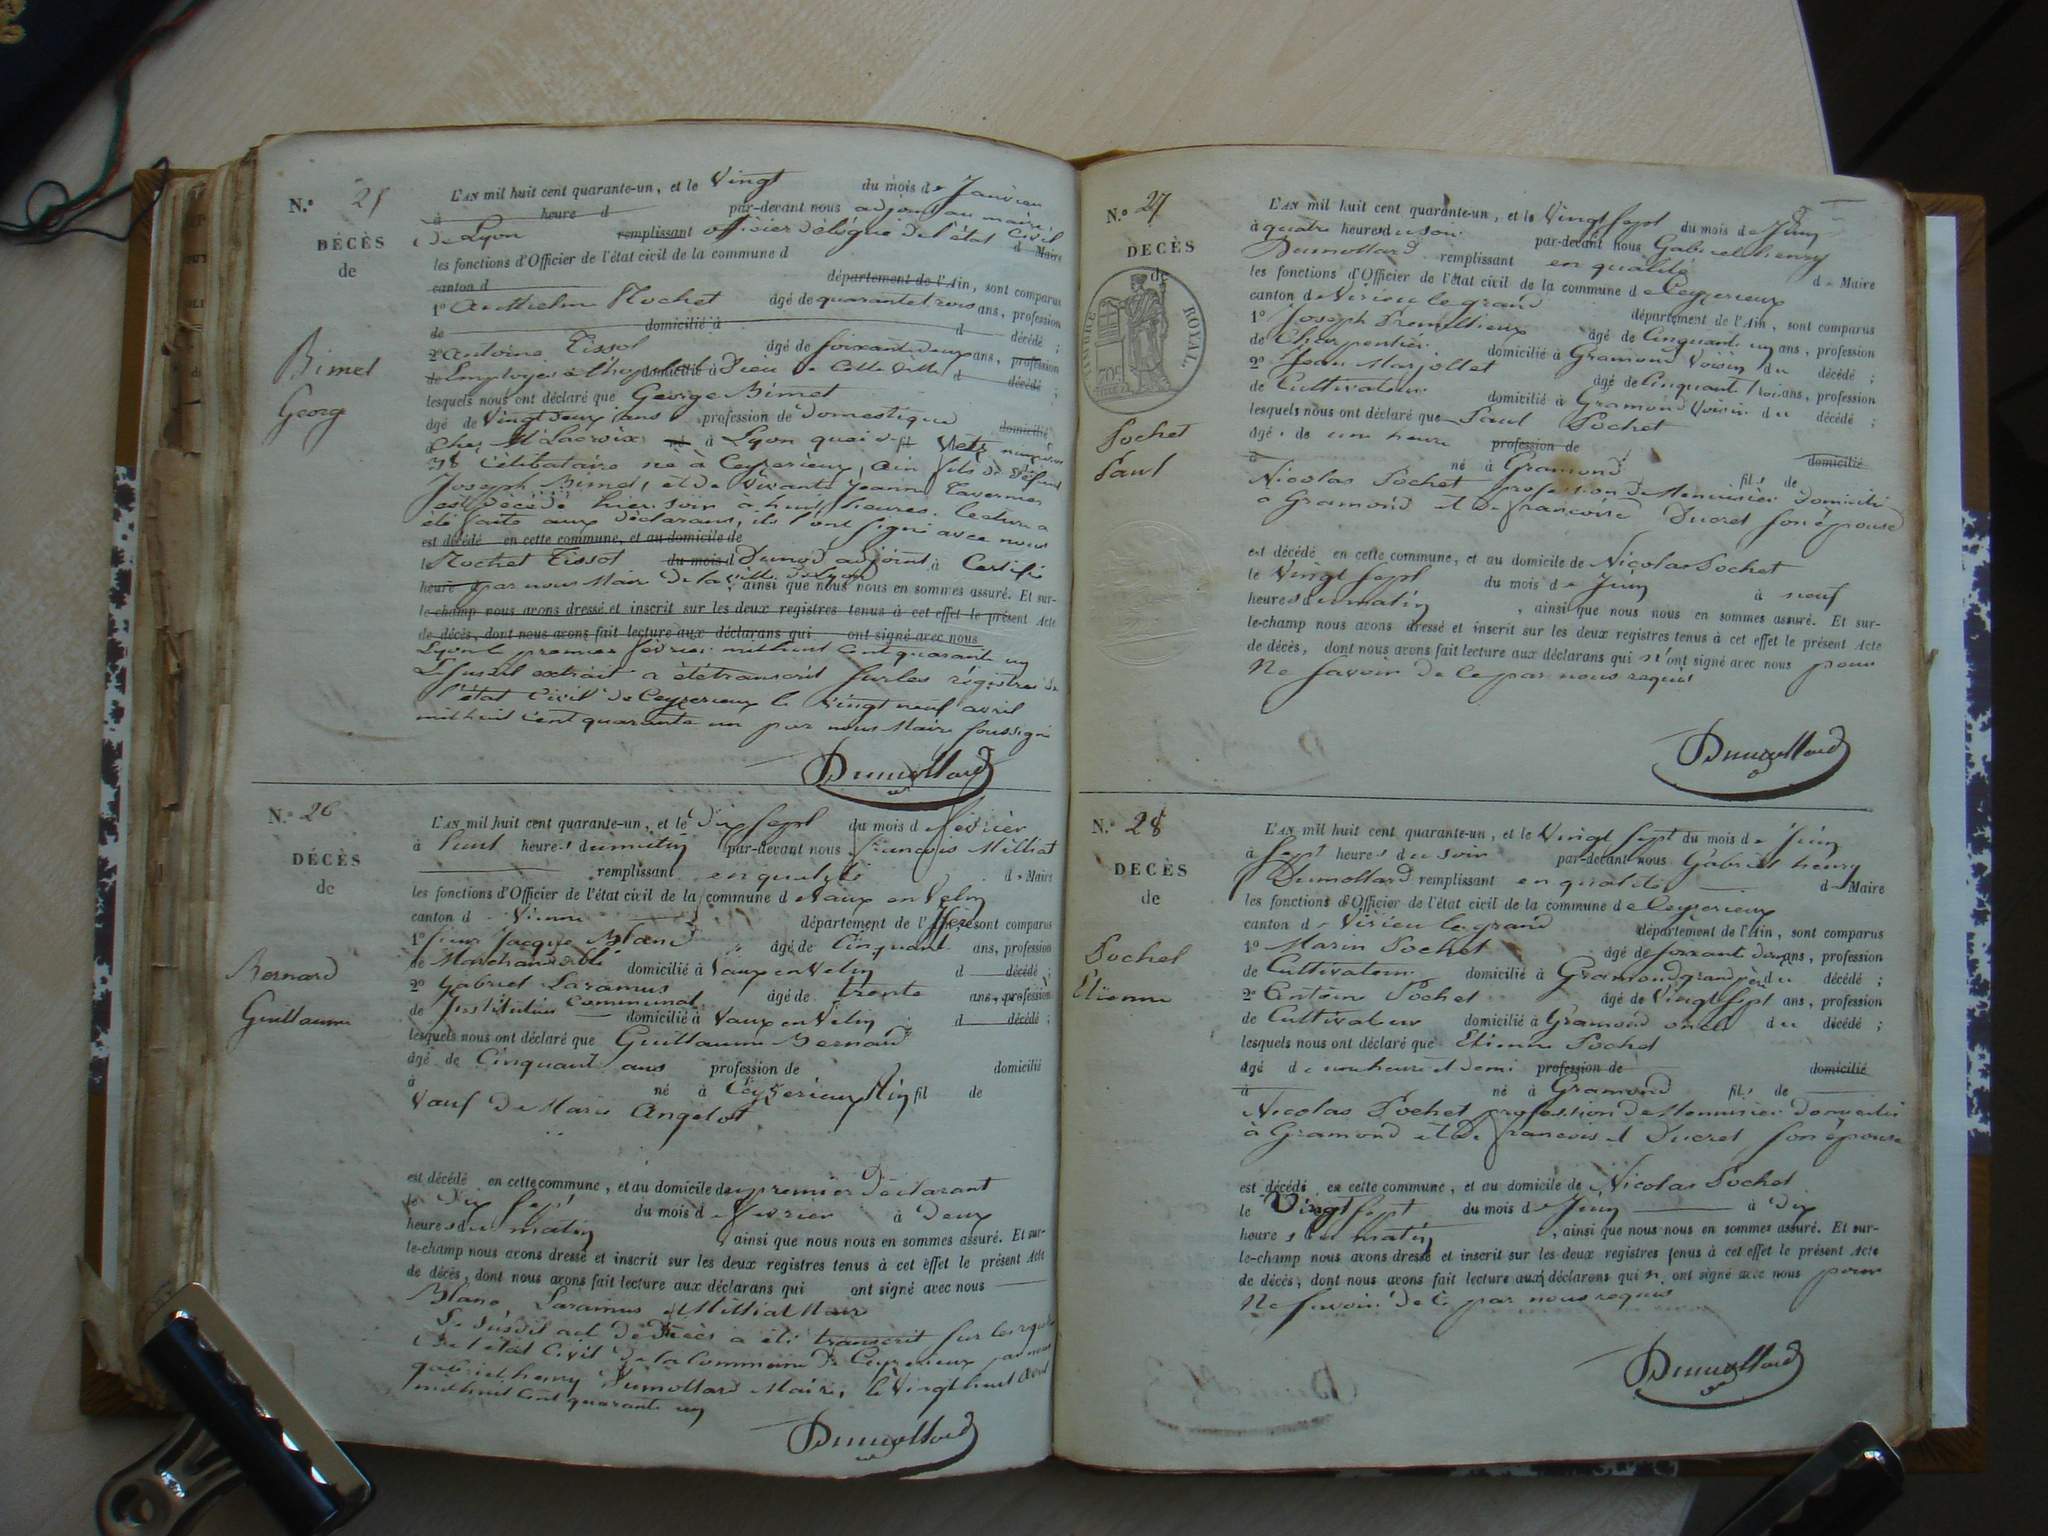 N.º 25
DÉCÈS
de
Bimet
George
L'AN mil huit cent quarante-un, et le Vingt du mois de Janvier
à heure d par-devant nous adjoint au maire
de Lyon remplissant officier délégué de l'état Civil d Maire
les fonctions d'Officier de l'état civil de la commune d
canton d département de l'Ain, sont comparus
1º Anthelme Rochet âgé de quarante trois ans, profession
de domicilié à d décédé ;
2º Antoine Tissot âgé de soixante deux ans, profession
de Employés à l'hop domicilié à Dieu de Cette Ville d décédé ;
lesquels nous ont déclaré que George Bimet
âgé de Vingt deux ans profession de domestique domicilié
à Chez Mr Lacroix né à Lyon quai de Retz numéro
38 Célibataire né à Ceyzerieux, Ain fils de défunt
Joseph Bimet, et de vivante Jeanne Tavernier
est décédé hier soir à huit heures. Lecture a
été faite aux déclarans, ils l'ont signé avec nous
est décédé en cette commune, et au domicile de
le Rochet Tissot du mois d Dumod adjoint à Certifié
heure d par nous Maire de la ville de Lyon, ainsi que nous nous en sommes assuré. Et sur-
le-champ nous avons dressé et inscrit sur les deux registres tenus à cet effet le présent Acte
de décès, dont nous avons fait lecture aux déclarans qui ont signé avec nous
Lyon le premier février mil huit Cent quarante un
Le susdit extrait a été transcrit sur les régistres de
l'état Civil de Ceyzerieux le Vingt neuf avril
mil huit Cent quarante un par nous Maire soussigné
Dumollard
N.º 26
DÉCÈS
de
Bernard
Guillaume
L'AN mil huit cent quarante-un, et le dix sept du mois de février
à huit heures du matin par-devant nous François Milliat
remplissant en qualité d e Maire
les fonctions d'Officier de l'état civil de la commune d e Vaux en Velin
canton d e Vienne département de l'Isère sont comparus
1º sieur Jacque Blanc âgé de Cinquante ans, profession
de Marchand de blé domicilié à Vaux en Velin d décédé ;
2º Gabriel Laramus âgé de trente ans, profession
de Instituteur Communal domicilié à Vaux en Velin d décédé ;
lesquels nous ont déclaré que Guillaume Bernard
âgé de Cinquante ans profession de domicilié
à né à Ceyzerieux Ain fil de
Vauf de Marie Angelot
est décédé en cette commune, et au domicile du premier Déclarant
le Dix sept du mois de février à Deux
heures du matin, ainsi que nous nous en sommes assuré. Et sur-
le-champ nous avons dressé et inscrit sur les deux registres tenus à cet effet le présent Acte
de décès, dont nous avons fait lecture aux déclarans qui ont signé avec nous
Blanc, Laramus et Milliat Maire
Le susdit act de Décès a été transcrit sur les
de l'état Civil de la Commune de Ceyzerieux par nous
gabriel henry Dumollard Maire, le Vingt huit Avril
mil huit Cent quarante un
Dumollard
N.º 27
DÉCÈS
de
TIMBRE ROYAL
70c
Pochet
Paul
L'AN mil huit cent quarante-un, et le Vingt sept du mois de Juin
à quatre heures du soir par-devant nous Gabriel henry
Dumollard remplissant en qualité d e Maire
les fonctions d'Officier de l'état civil de la commune de Ceyzerieux
canton de Virieu le grand département de l'Ain, sont comparus
1º Joseph Premillieux âgé de Cinquante un ans, profession
de Charpentier domicilié à Gramond Voisin du décédé ;
2º Jean Marjollet âgé de Cinquante trois ans, profession
de Cultivateur domicilié à Gramond Voisin du décédé ;
lesquels nous ont déclaré que Paul Pochet
âgé de une heure profession de domicilié
à né à Gramond fils de
Nicolas Pochet profession de Menuisier domicilié
a Gramond et de francoise Ducret son épouse
est décédé en cette commune, et au domicile de Nicolas Pochet
le Vingt sept du mois de Juin à neuf
heures du matin, ainsi que nous nous en sommes assuré. Et sur-
le-champ nous avons dressé et inscrit sur les deux registres tenus à cet effet le présent Acte
de décès, dont nous avons fait lecture aux déclarans qui n'ont signé avec nous pour
Ne savoir de Ce par nous requis
Dumollard
N.º 28
DÉCÈS
de
Pochet
Etienne
L'AN mil huit cent quarante-un, et le Vingt sept du mois de Juin
à sept heures du soir par-devant nous Gabriel henry
Dumollard remplissant en qualité d e Maire
les fonctions d'Officier de l'état civil de la commune de Ceyzerieux
canton de Virieu le grand département de l'Ain, sont comparus
1º Marin Pochet âgé de soixante deux ans, profession
de Cultivateur domicilié à Gramond grand père du décédé ;
2º Antoine Pochet âgé de Vingt sept ans, profession
de Cultivateur domicilié à Gramond oncle du décédé ;
lesquels nous ont déclaré que Etienne Pochet
âgé de une heure et demi profession de domicilié
à né à Gramond fils de
Nicolas Pochet profession de Menuisier domicilié
à Gramond et de francois et Ducret son épouse
est décédé en cette commune, et au domicile de Nicolas Pochet
le Vingt sept du mois de Juin à dix
heures du matin, ainsi que nous nous en sommes assuré. Et sur-
le-champ nous avons dressé et inscrit sur les deux registres tenus à cet effet le présent Acte
de décès, dont nous avons fait lecture aux déclarans qui n'ont signé avec nous pour
Ne savoir de Ce par nous requis
Dumollard